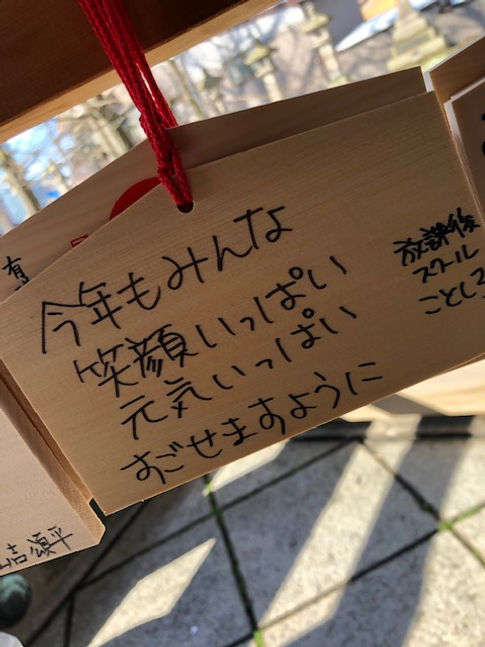 今年もみんな
笑顔いっぱい
元気いっぱい
すごせますように
放課後
スクール
ことし
有
吉頌平